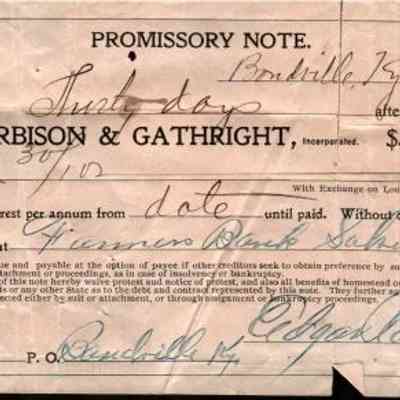 PROMISSORY NOTE.
Bondville, Ky
Thirty days afte
RBISON & GATHRIGHT, Incorporated. $
30/100
With Exchange on Lou
rest per annum from date until paid. Without
at Farmers Bank
ue and payable at the option of payee if other creditors seek to obtain preference by su
ttachment or proceedings, as in case of insolvency or bankruptcy.
of this note hereby waive protest and notice of protest, and also all benefits of homestead or
ds or any other State as to the debt and contract represented by this note. They further a
ected either by suit or attachment, or through assignment or bankruptcy proceedings.
Edgar
P. O. Bondville Ky.